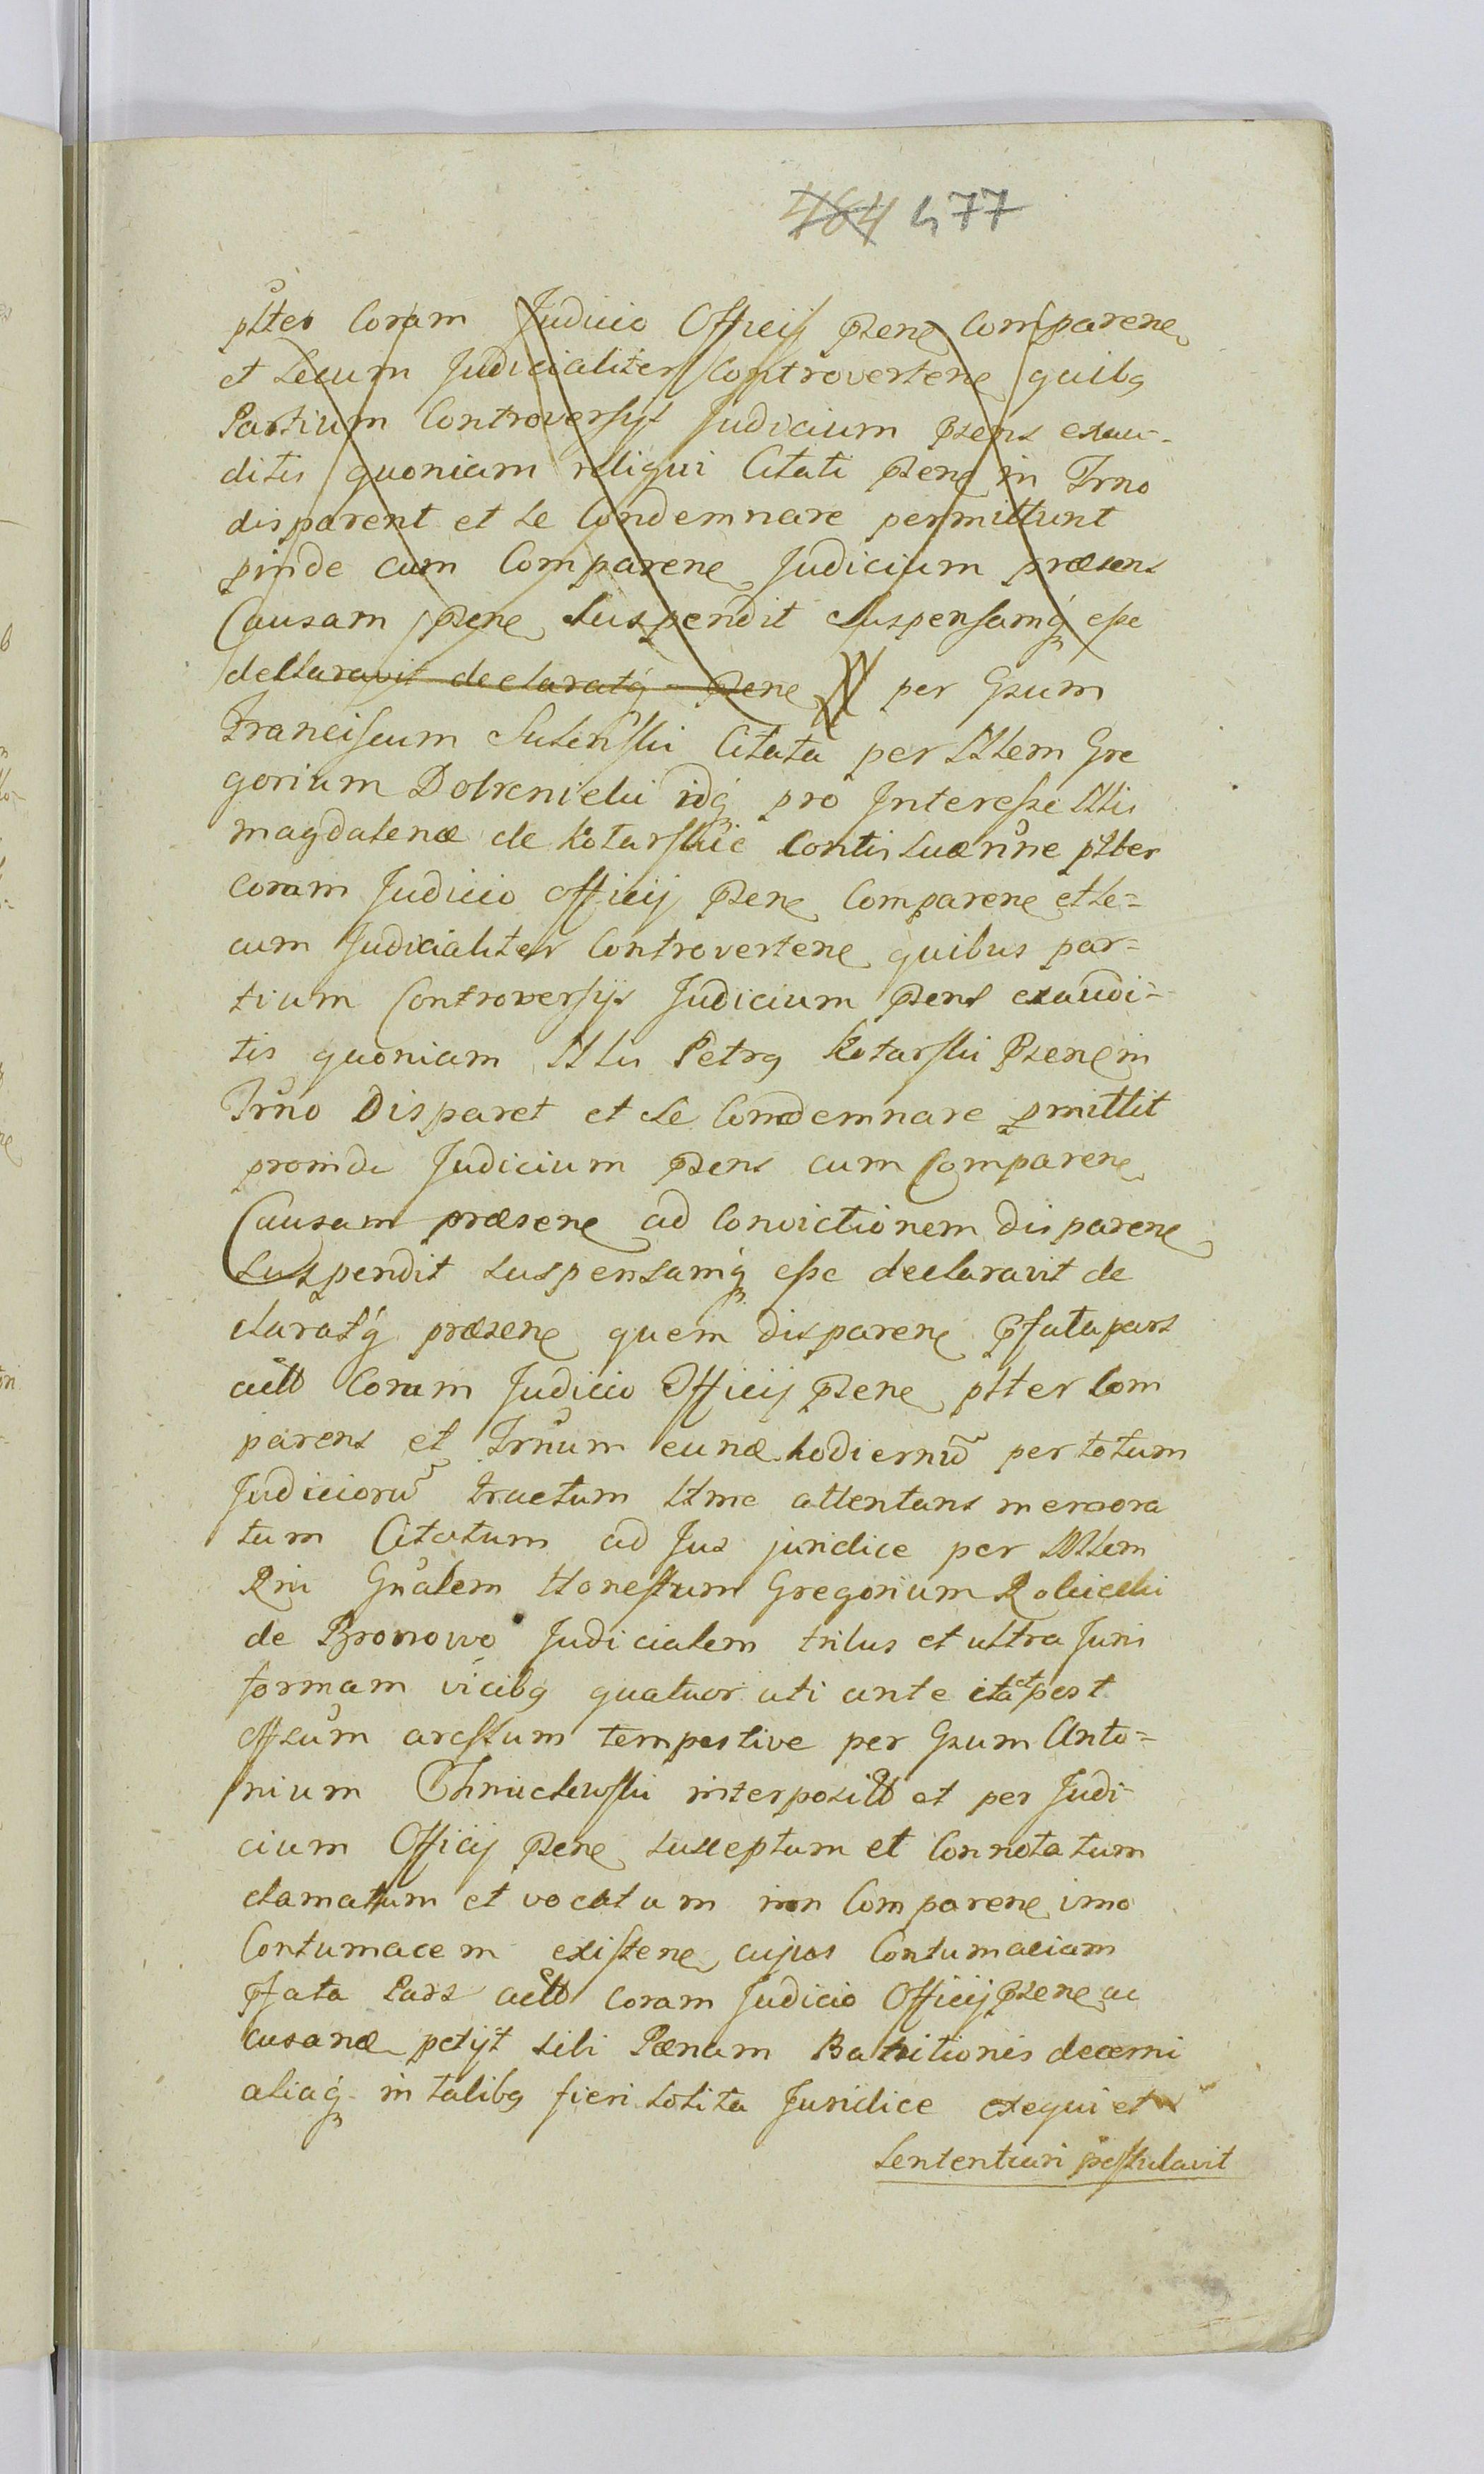 484 477
plter Coram Judicio Officij Psene Comparene
et Secum Judicialiter Controvertene quibq
Partium Controversijs Judicium Psens exau-
ditis quoniam reliqui Citati Psene in Trno
disparent et se Condemnare permittunt
pinde cum Comparene Judicium præsens
Causam Psene Suspendit Suspensamq esse
declaravit declaratq Psene per Gsum
Franciscum Sulenski Citata per Mlem Gre
gorium Dobrenicki idq pro Interesse Mlis
magdalenæ de Kotarskie Contis suæ nne plter
coram Judicio officij Psene Comparene et se=
cum Judicialiter Controvertene quibus par=
tium Controversijs Judicium Psens exaudi=
tis quoniam Mlis Petrq Kotarski Psene in
Trno Disparet et se Condemnare pmittit
proinde Judicium Psens cum Comparene
Causam præsene ad Convictionem disparene
suspendit suspensamq esse declaravit de
claratq præsene quem disparene Pfata pars
actto Coram Judicio Officij Psene plter Com
parens et Trnum eunæ hodiernu per totum
Judicioru tractum ltme attentans memora
tum Citatum ad Jus juridice per Mlem
Rni Gnalem Honestum Gregorium Rolicki
de Bronowo Judicialem tribus et ultra Juris
formam vicibq quatuor uti ante ita et post
offsum arestum tempestive per Gsum Anto=
nium Chmielewski interposito et per Judi
cium Officij Psene susceptum et Connotatum
clamatum et vocatum non Comparene imo
Contumacem existene cujus Contumaciam
Pfata Pars actto coram Judicio Officij Psene ac
cusanæ petijt sibi Pænam Bannitionis decerni
aliaq in talibq fieri solita Juridice exequi et
Sententiari postulavit